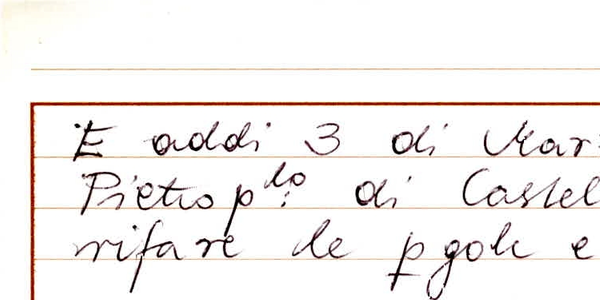 E addi 3 di Mar
Pietro p.do di Castel
rifare le pgole e